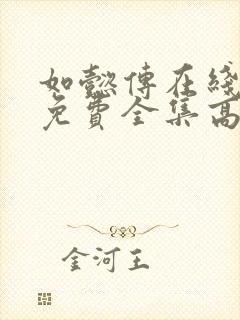 如懿傳在綫
免費全集高
金河王